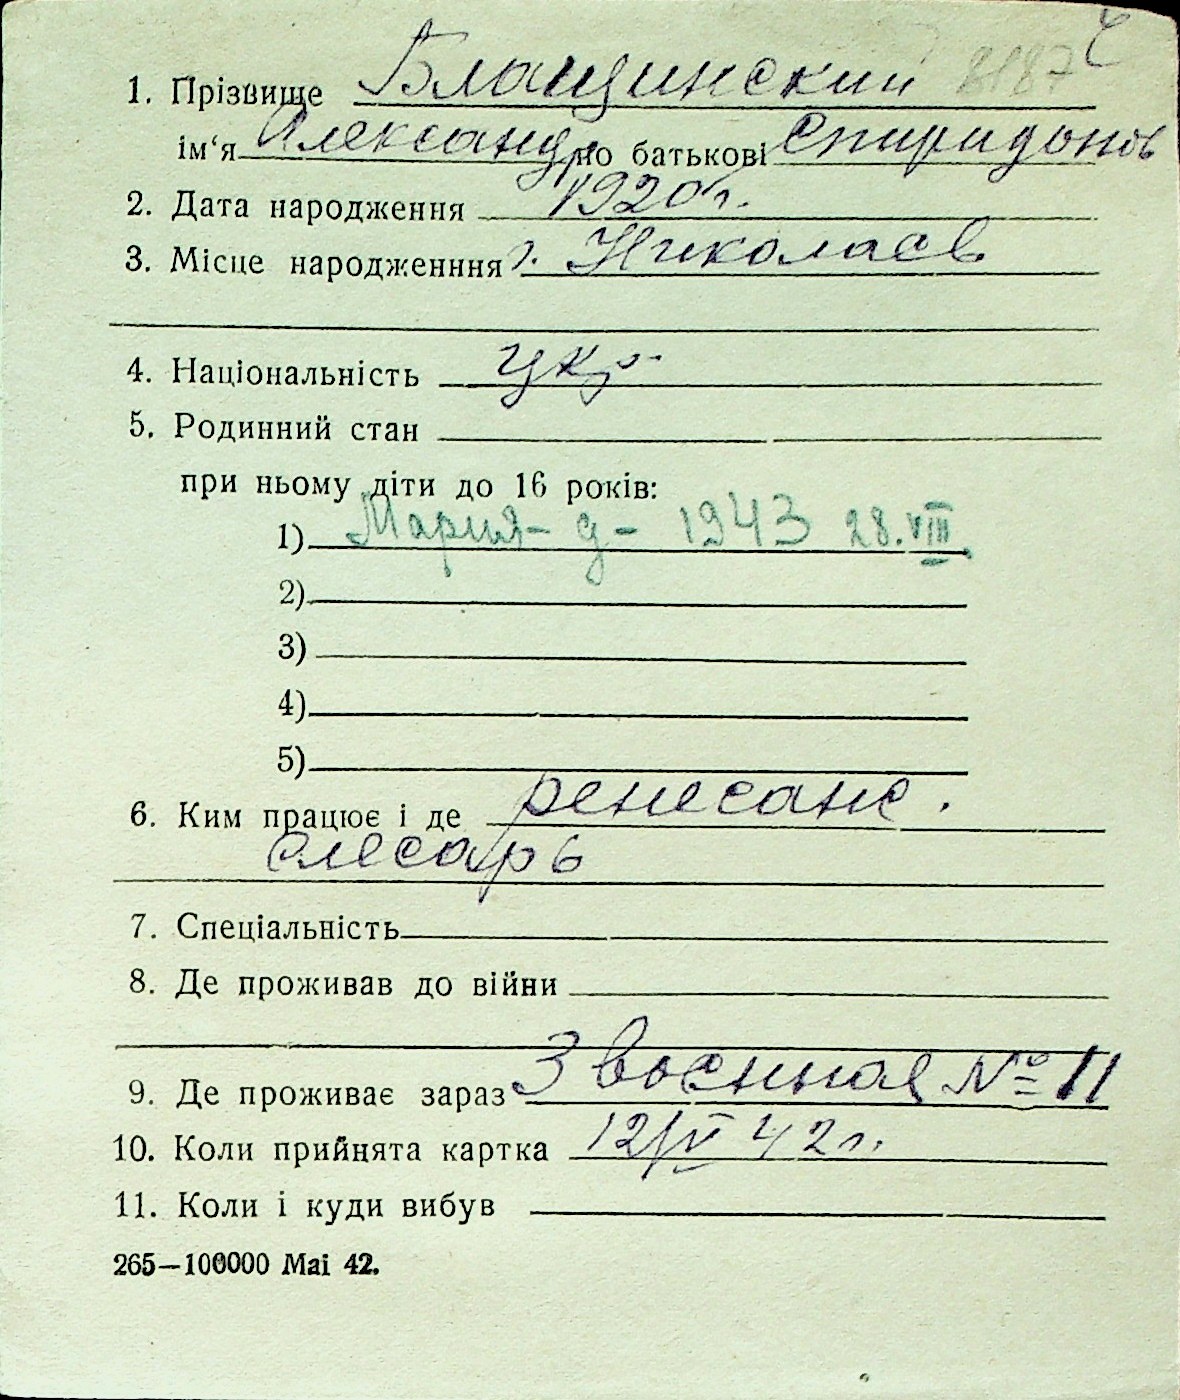 1. Прізвище Блащинский 8187
ім‘я Александр по батькові Спиридонов
2. Дата народження 1920 г.
3. Місце народженння г. Николаев
4. Національність укр.
5. Родинний стан
при ньому діти до 16 років:
1) Мария - д - 1943 28.VIII.
2)
3)
4)
5)
6. Ким працює і де ренесанс.
слесарь
7. Спеціальність
8. Де проживав до війни
9. Де проживає зараз 3 военная № 11
10. Коли прийнята картка 12/V 42 г.
11. Коли і куди вибув
265—100000 Mai 42.